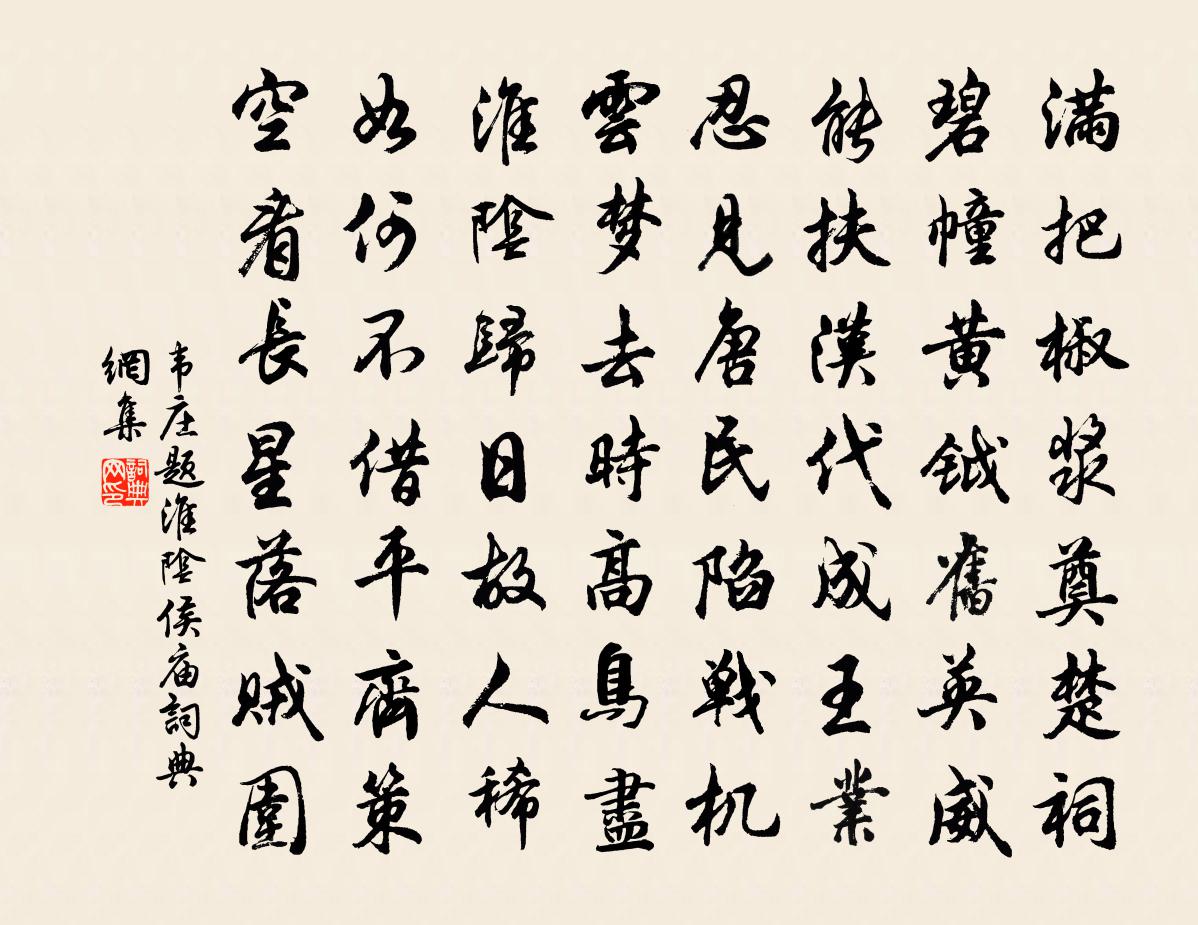 满把椒浆奠楚祠
碧幢黄钺舊英威
能扶漢代成王業
忍見唐民陷戦机
雲梦去時高鳥盡
淮陰歸日故人稀
如何不借平齊策
空看長星落贼圍
韦庄题淮陰侯庙詞典
網集
詞典
网印